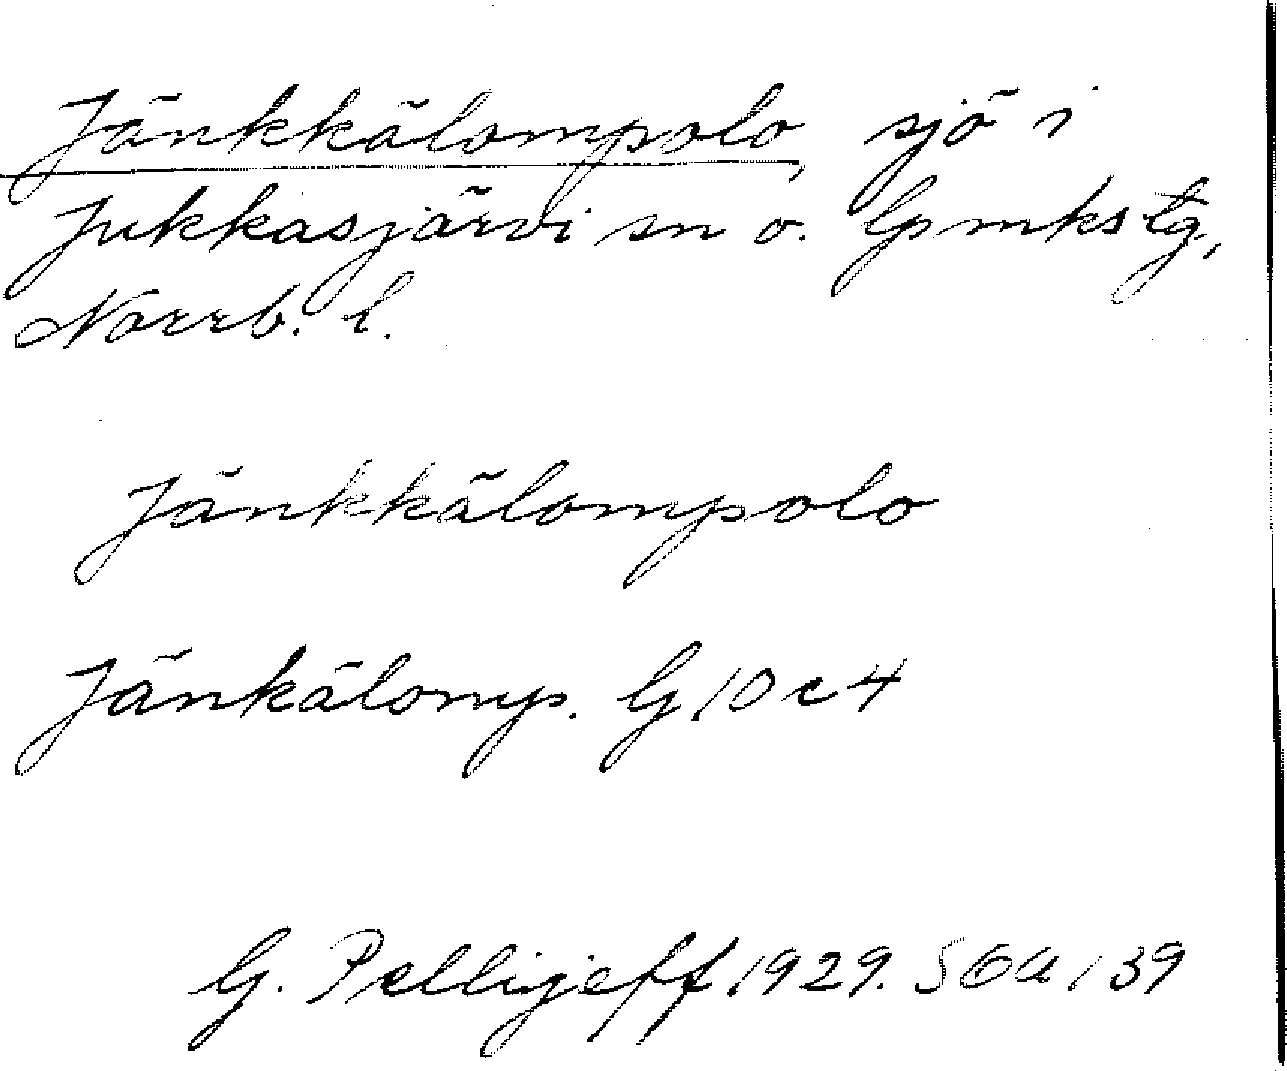 Jänkkälompolo, sjö i
Jukkasjärvi sn o. lpmkstg,
Norrb. l.
Jänkkälompolo
Jänkälomp. G 10 c 4
G. Pellijeff 1929. 56a/39